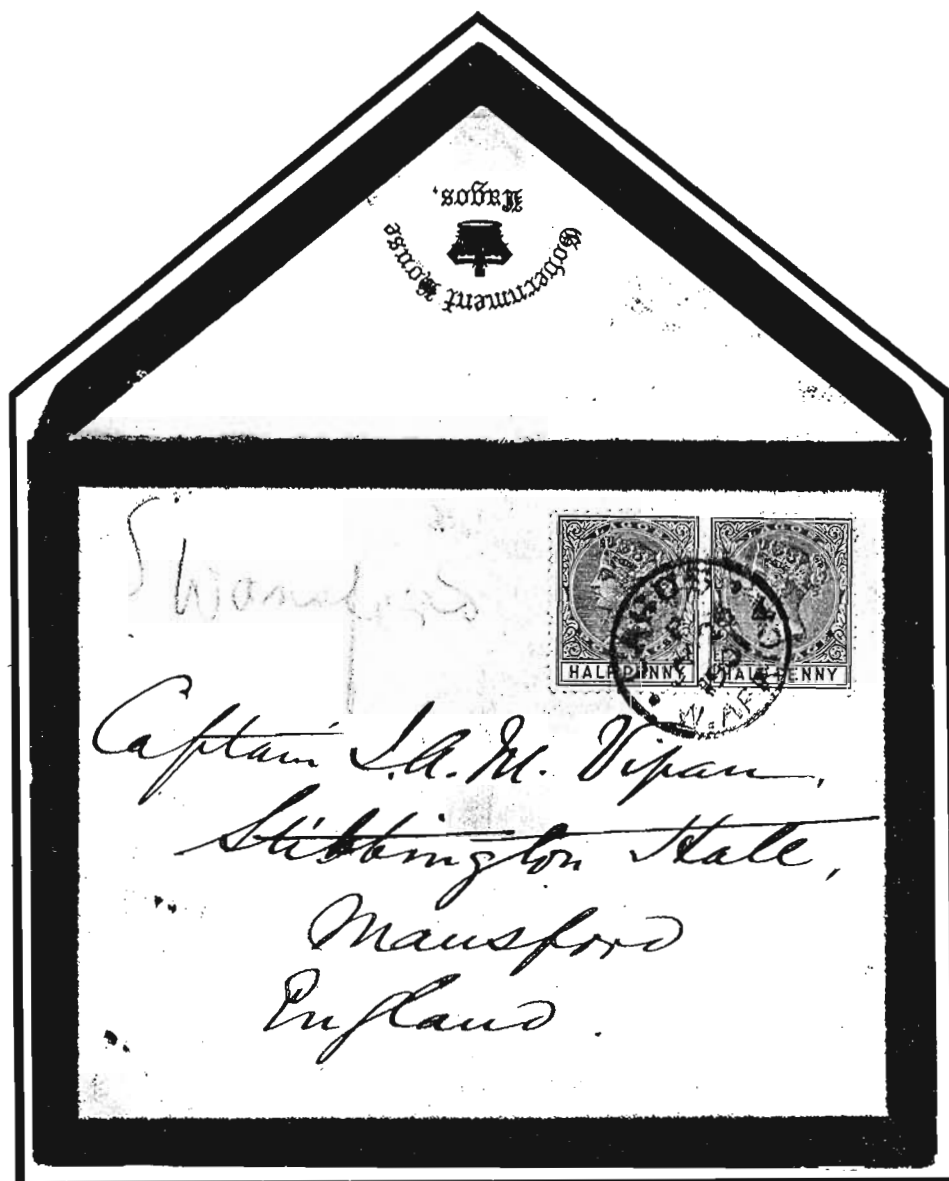 Government House
Lagos.
Wansford
HALFPENNY HALFPENNY
LAGOS
W. AFRICA
Captain J.A.M. Vipan,
Stibbington Hall,
Mansford
England.